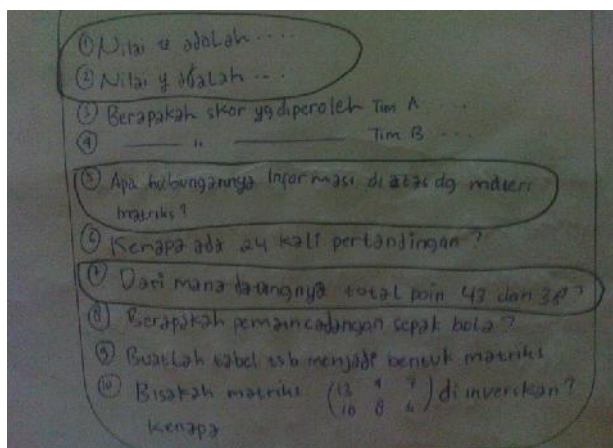 ① Nilai x adalah ....
② Nilai y adalah ...
③ Berapakah skor yg diperoleh Tim A ...
④ —— " ———— Tim B ...
⑤ Apa hubungannya Informasi di atas dg materi
matriks?
⑥ Kenapa ada 24 kali pertandingan?
⑦ Dari mana datangnya total poin 43 dan 38?
⑧ Berapakah pemain cadangan sepak bola?
⑨ Buatlah tabel tsb menjadi bentuk matriks
⑩ Bisakah matriks (13 9 7
10 8 6) di inverskan?
Kenapa